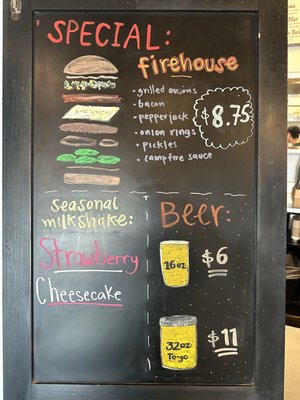 SPECIAL:
firehouse
- grilled onions
- bacon
- pepperjack
- onion rings
- pickles
- campfire sauce
$8.75
Seasonal
milkshake:
Strawberry
Cheesecake
Beer:
16oz
$6
32oz
To-go
$11